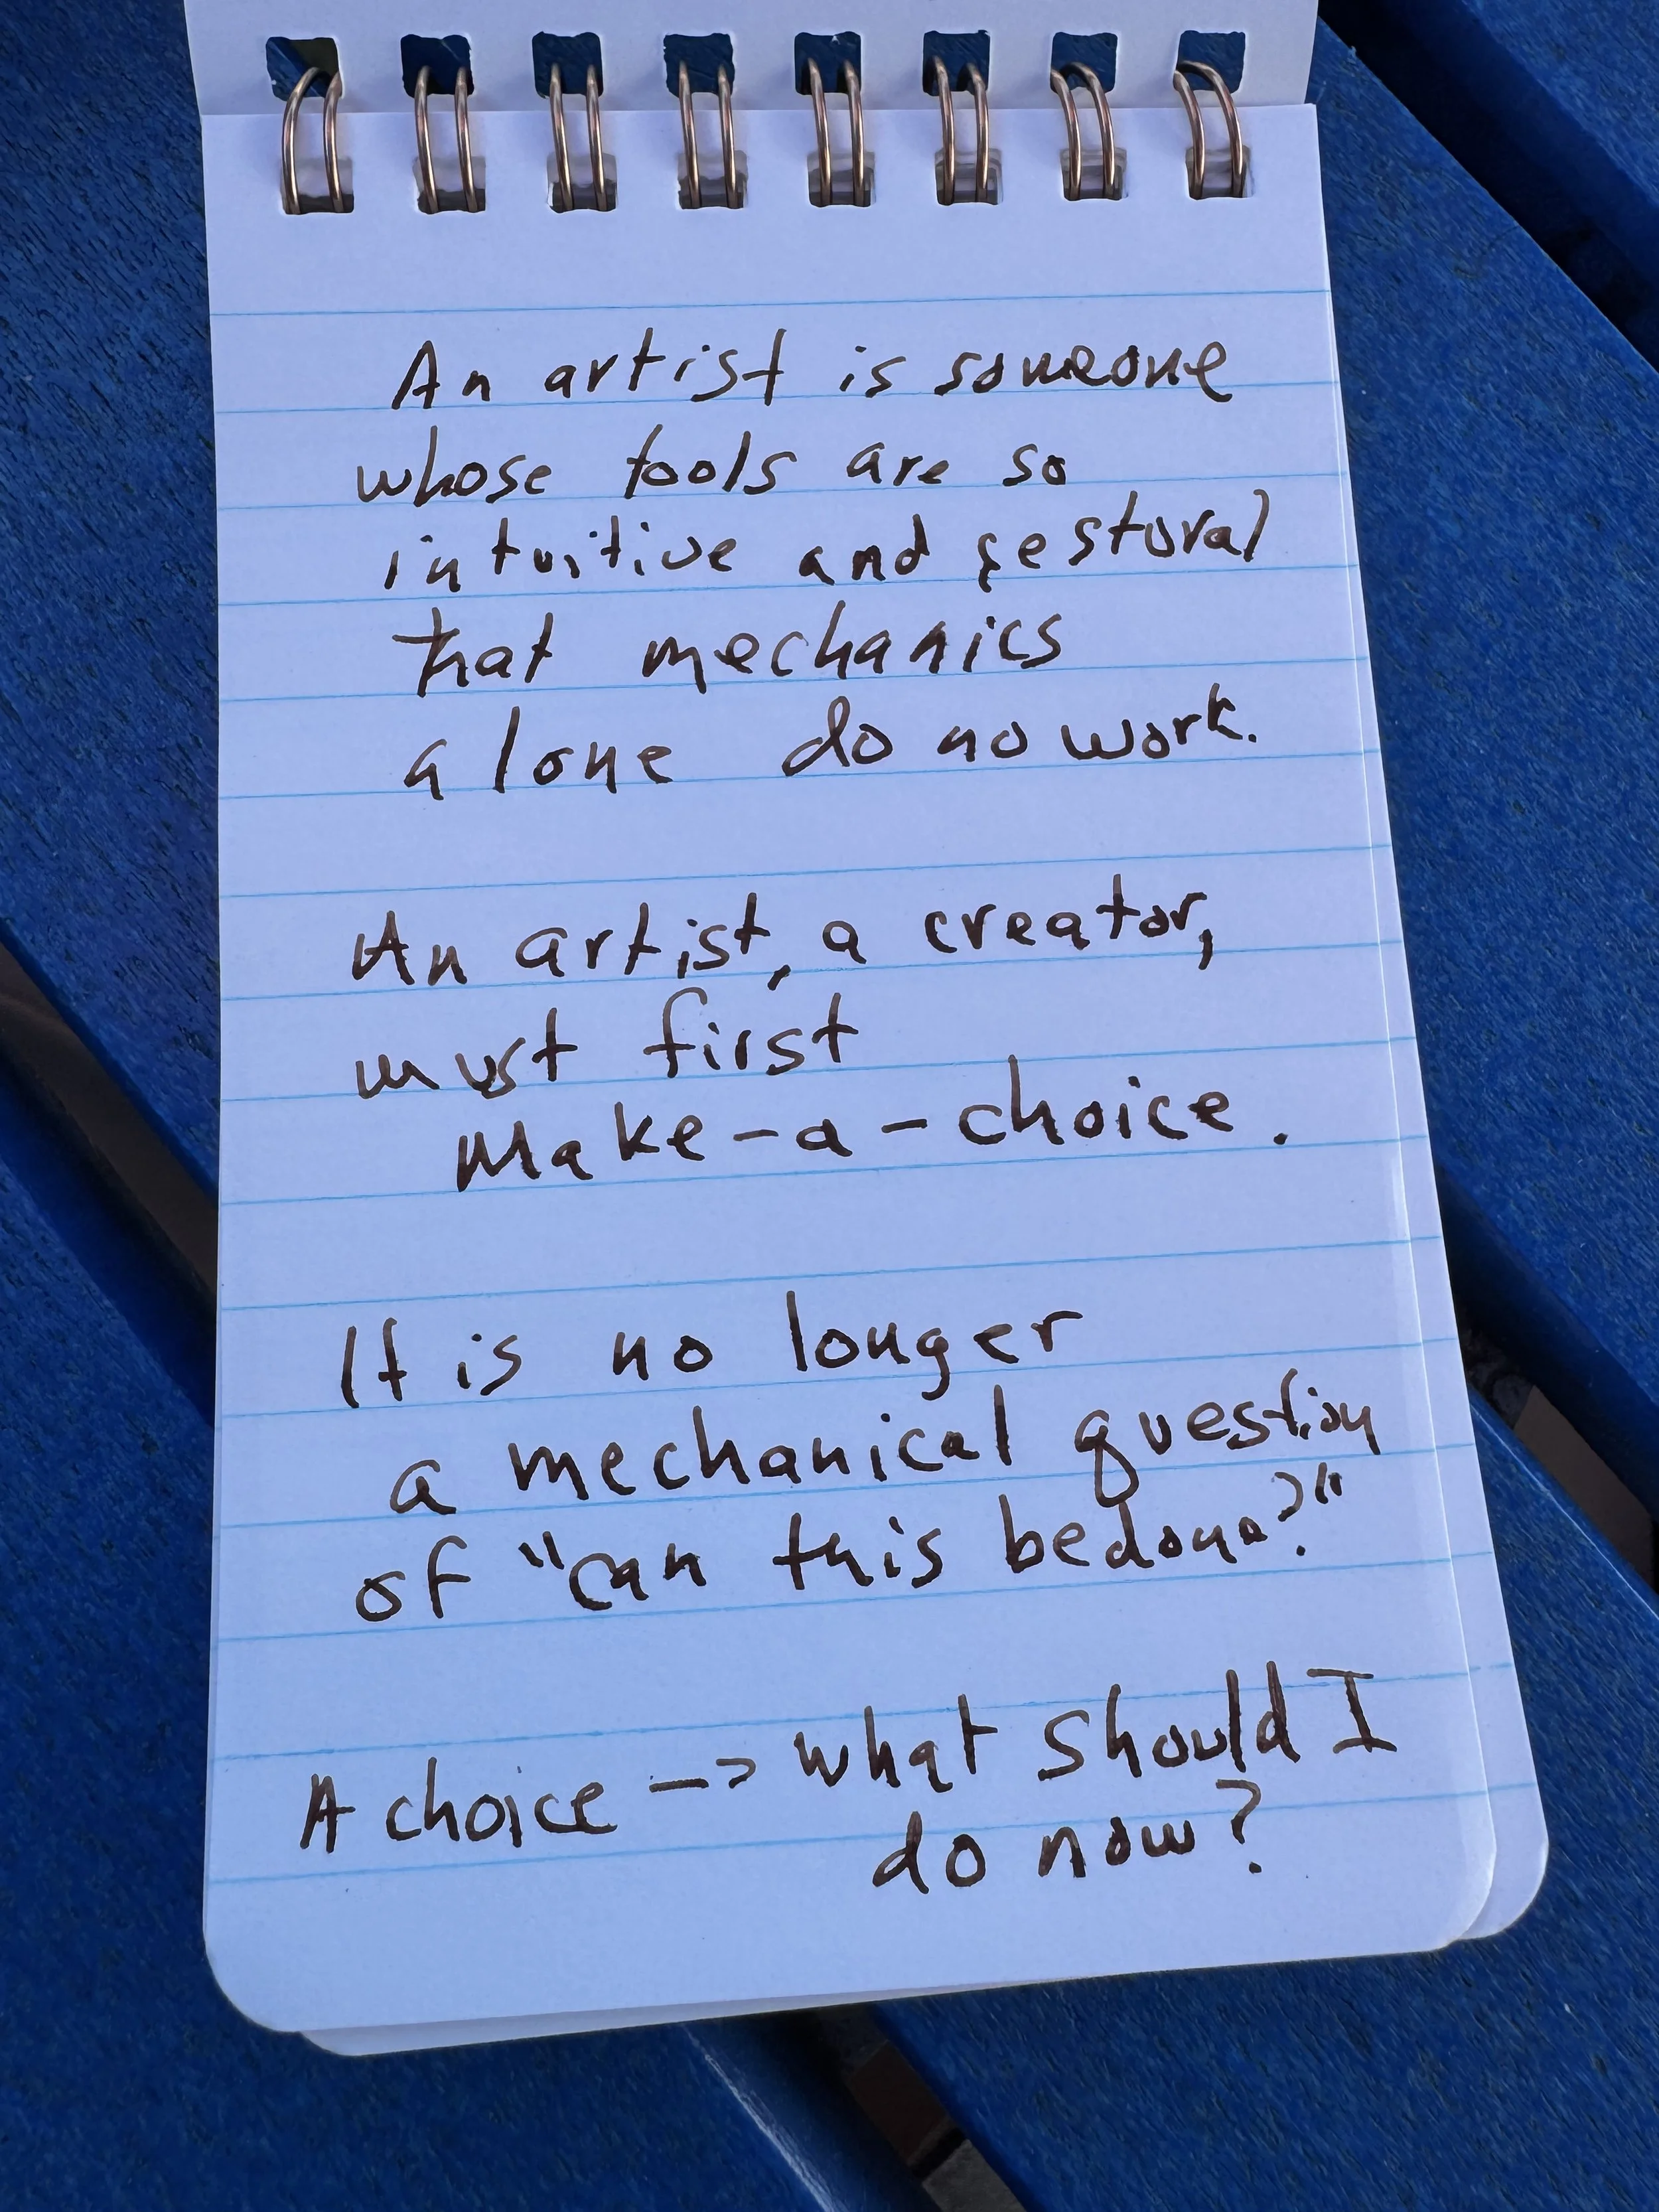 An artist is someone
whose tools are so
intuitive and gestural
that mechanics
alone do no work.
An artist, a creator,
must first
Make-a-choice.
It is no longer
a mechanical question
of "can this be done?"
A choice -> what should I
do now?